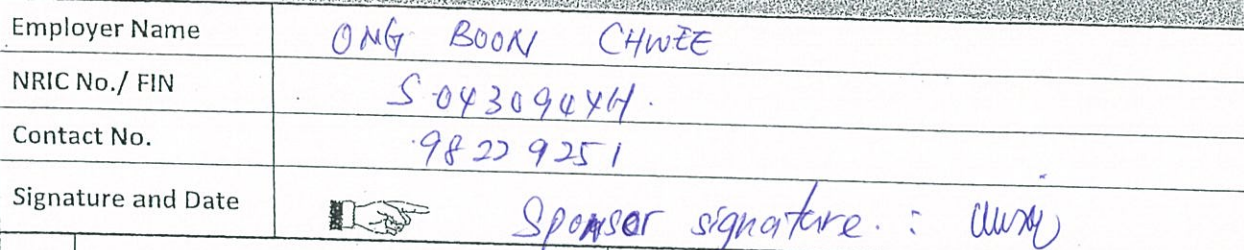 Employer Name ONG BOON CHWEE
NRIC No./ FIN S0430944H.
Contact No. 98229251
Signature and Date Sponsor signature. :